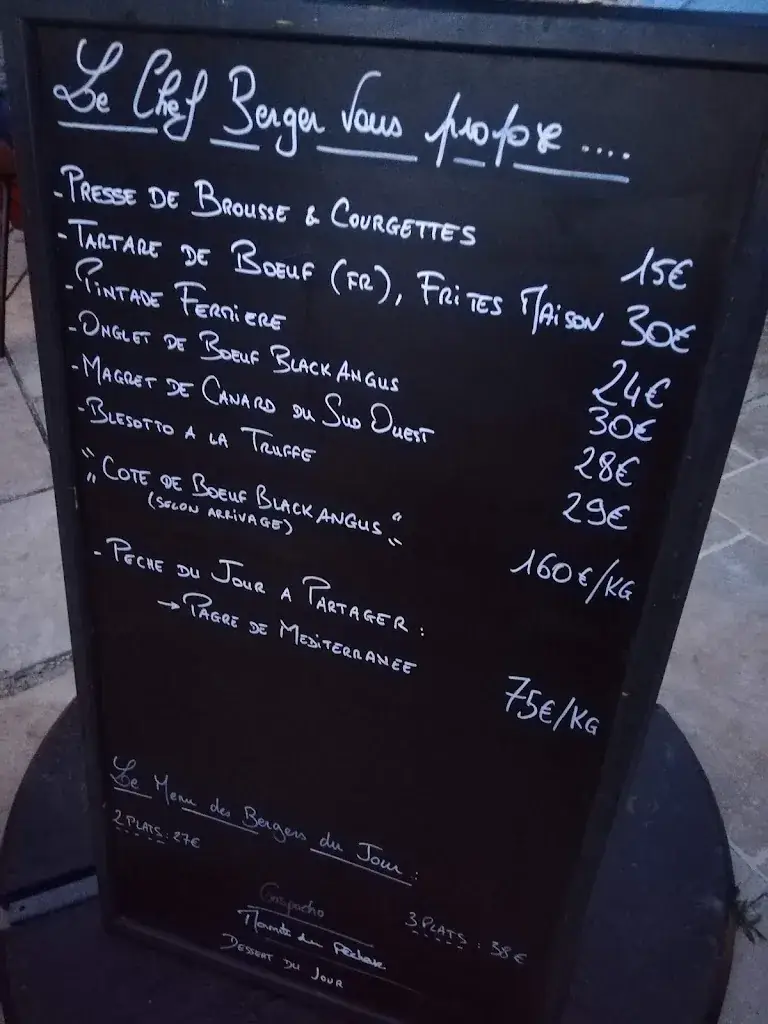 Le Chef Berger Vous propose ....
- PRESSE DE BROUSSE & COURGETTES 15€
- TARTARE DE BOEUF (FR), FRITES MAISON 30€
- PINTADE FERMIERE 24€
- ONGLET DE BOEUF BLACK ANGUS 30€
- MAGRET DE CANARD DU SUD OUEST 28€
- BLESOTTO A LA TRUFFE 29€
" COTE DE BOEUF BLACK ANGUS " 160€/KG
(SELON ARRIVAGE)
- PECHE DU JOUR A PARTAGER :
→ PAGRE DE MEDITERRANEE 75€/KG
Le Menu des Bergers du Jour :
2 PLATS : 27€
3 PLATS : 38€
Gaspacho
Marmite du pêcheur
DESSERT DU JOUR